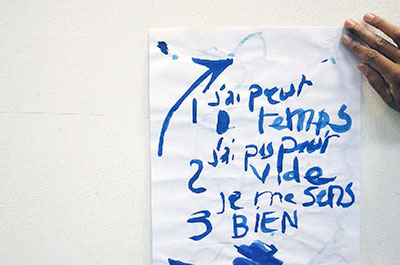 1 j'ai peur
temps
j'ai pas peur
2 vide
je me sens
3 BIEN